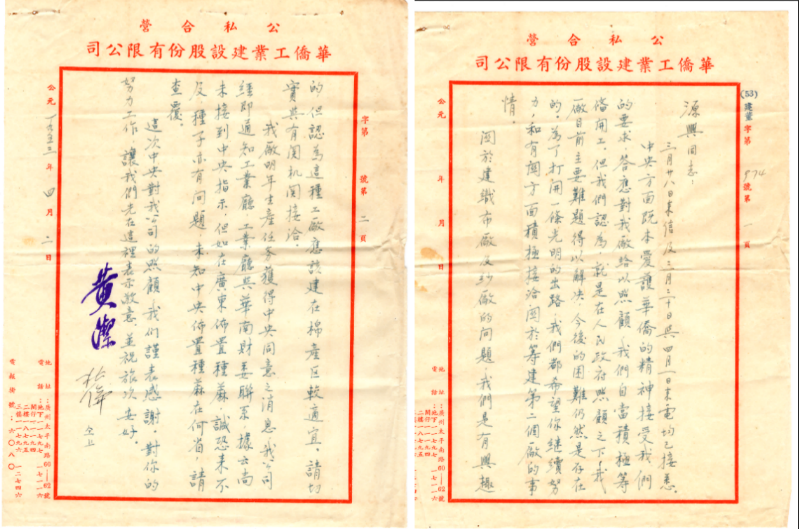 公私合營
華僑工業建設股份有限公司
(53)建業字第974號第一頁
源興同志：
三月廿八日來信及三月三十日與四月一日來電均已接悉。
中央方面既本愛護華僑的精神接受我們
的要求，答應對我廠給以照顧，我們自當積極筹
備開工。但我們認為，就是在人民政府照顧之下，我
廠目前主要難題得以解決，今後的困難仍然是存在
的，為了打開一條光明的出路，我們都希望你继續努
力，和有関方面積極接洽関於筹建第二個廠的事
情。
関於建織布廠及紗廠的問題，我們是有興趣
公元 年 月 日
公私合營
華僑工業建設股份有限公司
字第 號第二頁
的，但認為這種工廠應該建在棉產區較適宜，請切
實與有関机関接洽。
我廠明年生產任务獲得中央同意之消息，我公司
經即通知工業廳，工業廳與華南財委聯系，據云尚
未接到中央指示，但如在廣東佈置種蔴，誠恐來不
及，種子亦有問題，未知中央佈置種蔴在何省，請
查覆。
這次中央對我公司的照顧，我們謹表感謝。對你的
努力工作，讓我們先在這裡表示敬意，並祝旅次安好。
黃潔
公元一九五三年四月二日